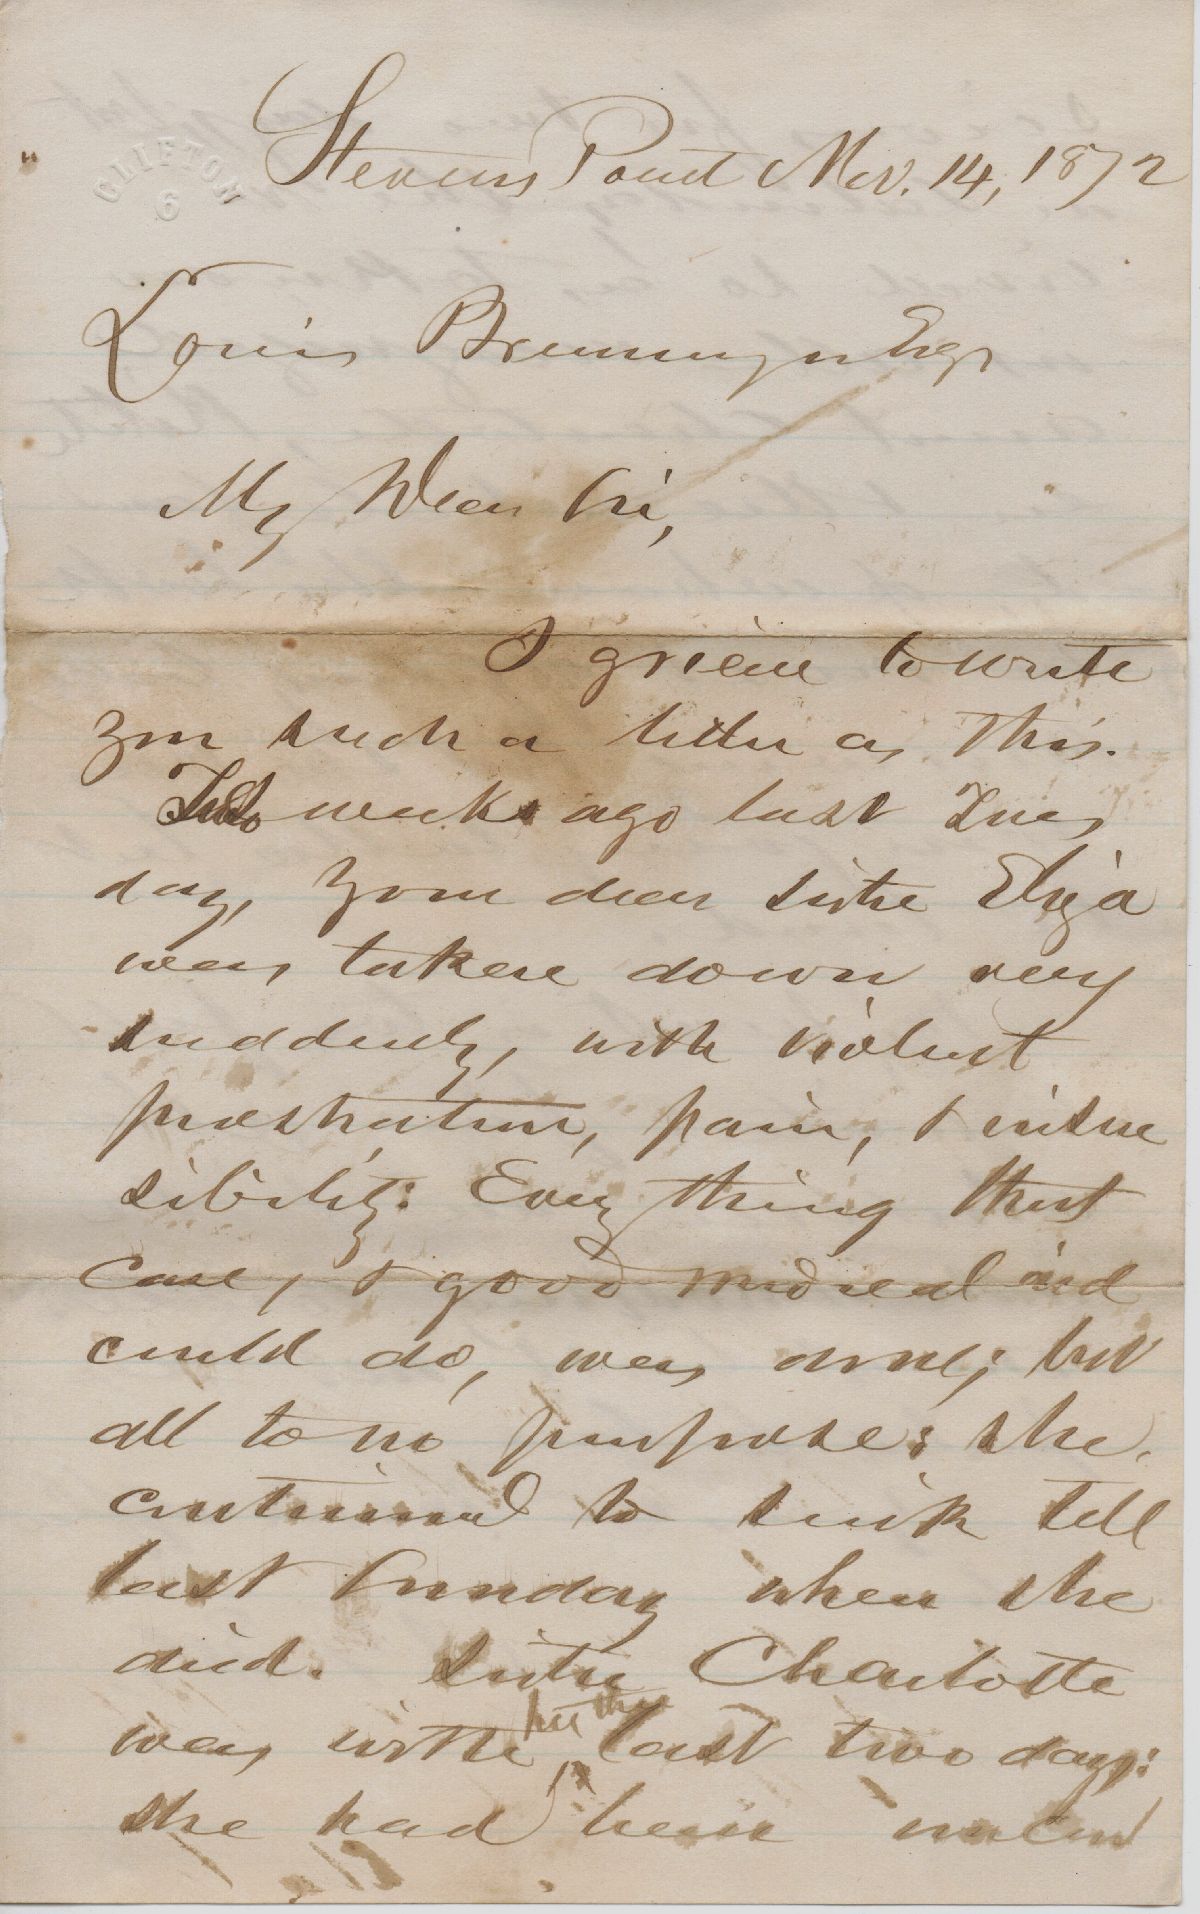 CLIFTON
6
Stevens Point Nov. 14, 1872
Louis Esqr
My Dear Sir,
I grieve to write
you such a letter as this.
Two weeks ago last Tues
day, your dear sister Eliza
was taken down very
suddenly, with violent
prostration, pain, & insen
sibility: Every thing that
care, & good medical aid
could do, was done; but
all to no purpose: she
continued to sink till
last Sunday when she
died. Sister Charlotte
her the
was with last two days:
she had been